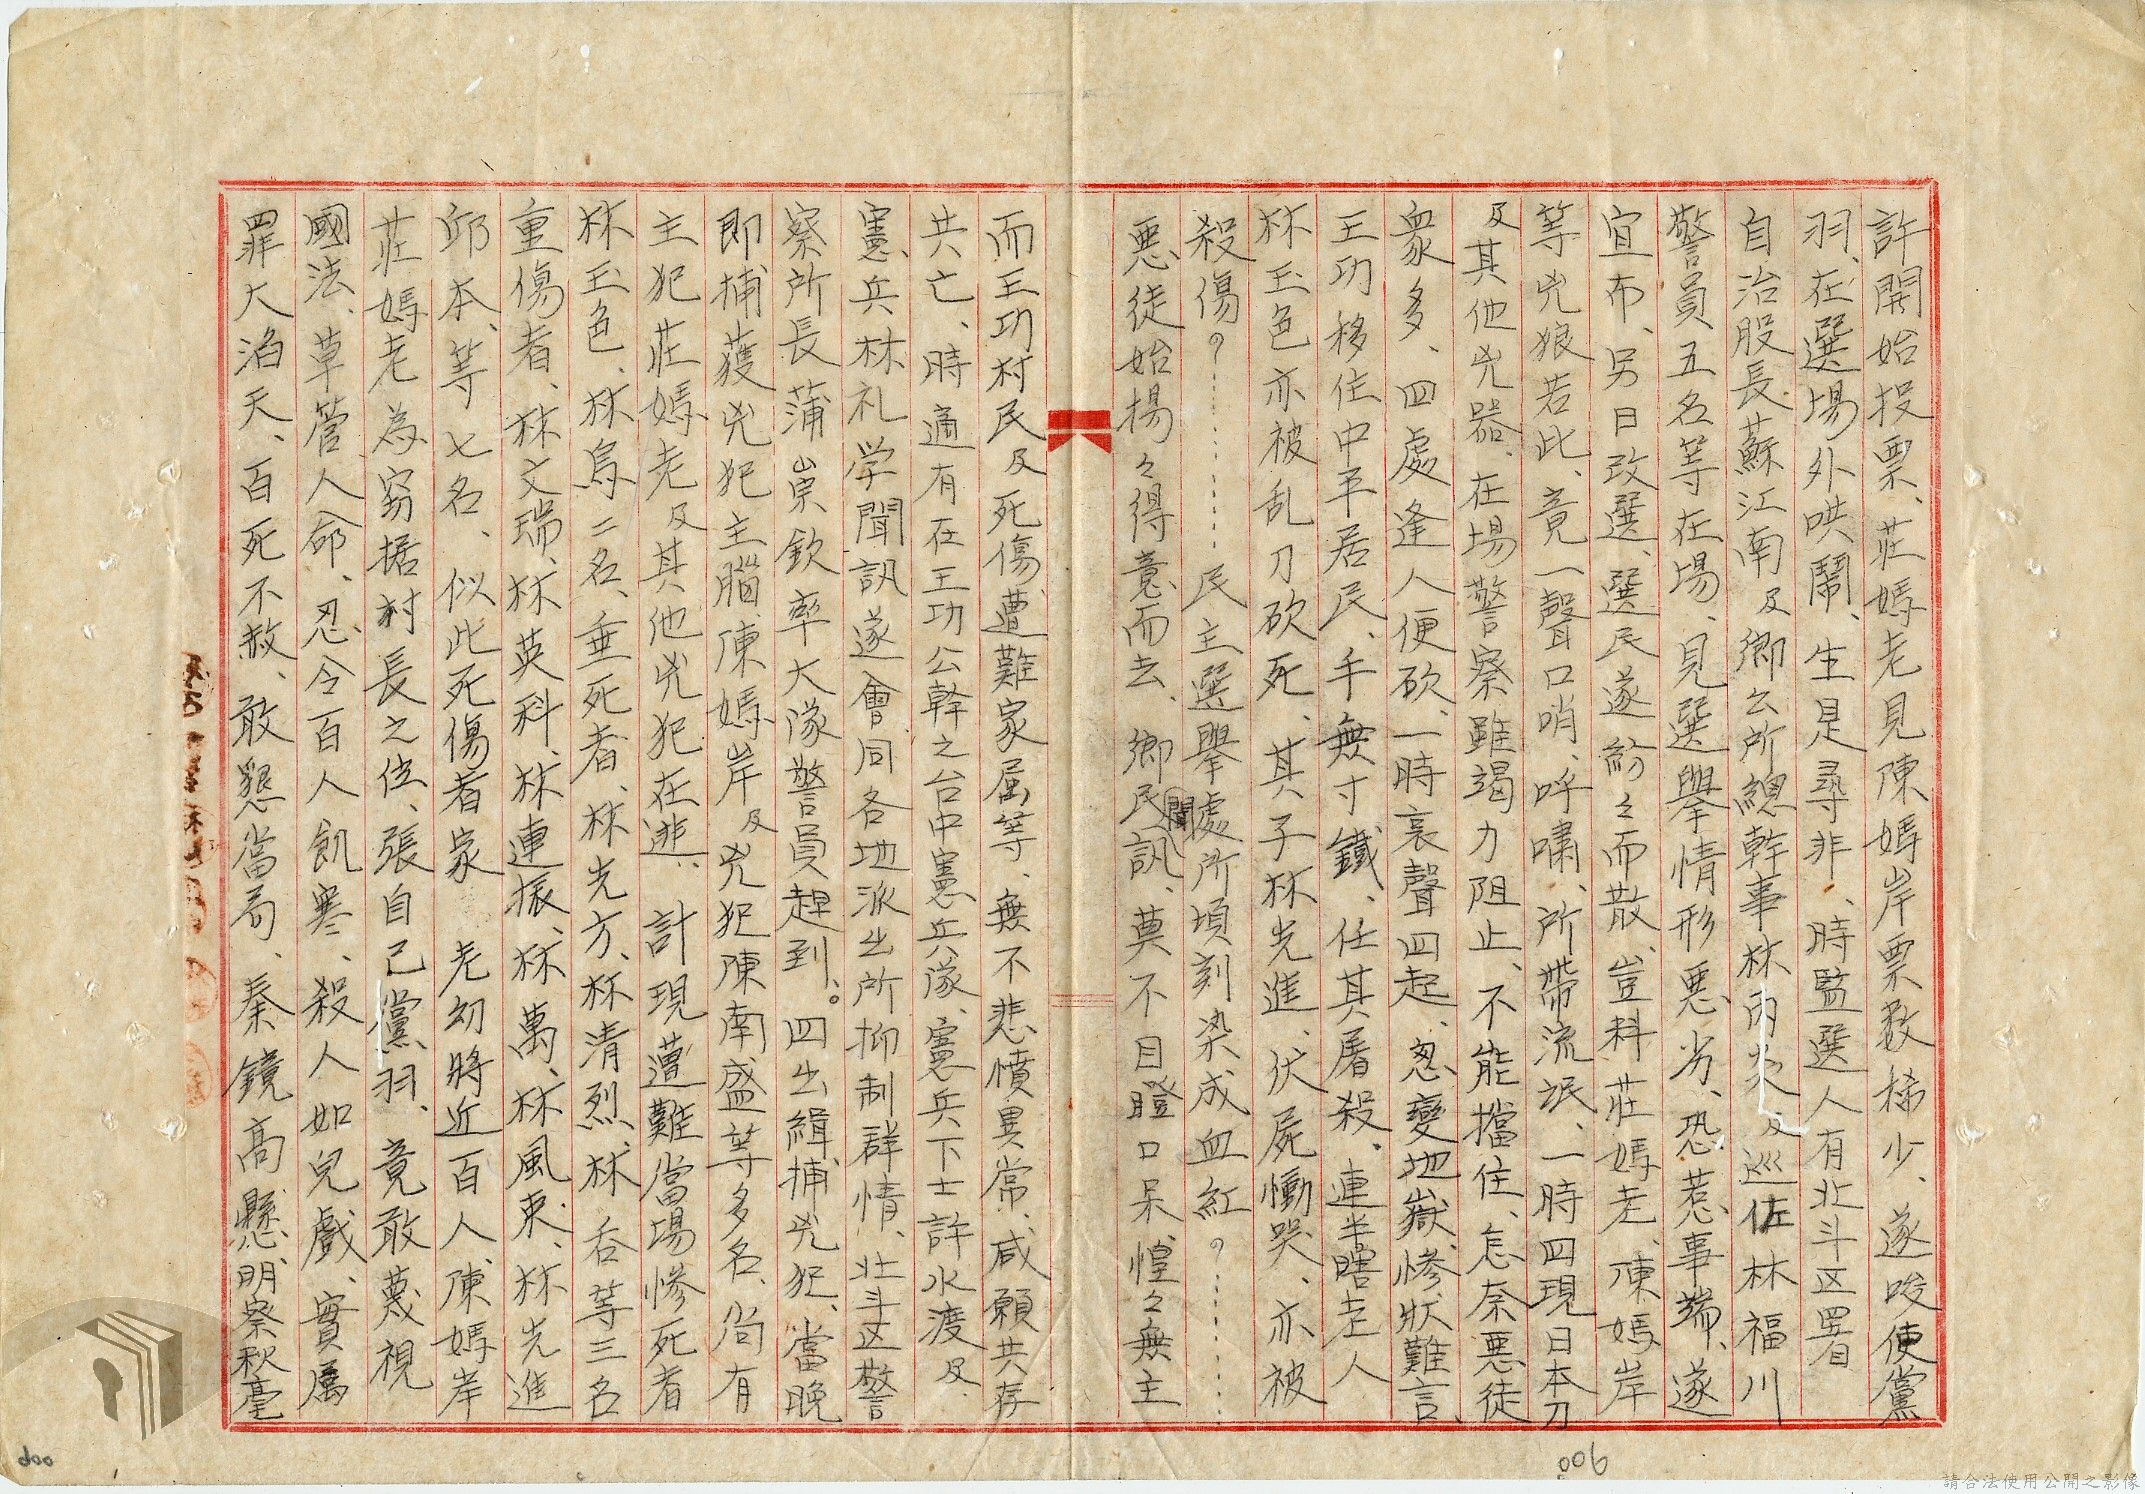 許開始投票、莊媽老見陳媽岸票数梯少、遂唆使黨
羽、在選場外哄鬧、生是尋非、時監選人有北斗区署
自治股長蘇江南及鄉公所總幹事林雨炎、及巡佐林福川
警員五名等在場、見選舉情形惡劣、恐惹事端、遂
宣布、另日改選、選民遂紛々而散、豈料莊媽老、陳媽岸
等兇狼若此、竟一聲口哨、呼嘯、所帶流氓、一時四現日本刀
及其他兇器、在場警察雖竭力阻止、不能擋住、怎奈惡徒
衆多、四處逢人便砍、一時哀聲四起、忽變地嶽、慘狀難言、
王功移住中平居民、手無寸鐵、任其屠殺、連半瞎老人
林玉色亦被乱刀砍死、其子林先進、伏屍慟哭、亦被
殺傷。…………民主選舉處所頃刻染成血紅。…………
惡徒始揚々得意而去、鄉民聞訊、莫不目瞪口呆、惶々無主
而王功村民及死傷遭難家属等、無不悲憤異常、咸願共存
共亡、時適有在王功公幹之台中憲兵隊、憲兵下士許水渡及
憲兵林礼学聞訊遂會同各地派出所抑制群情、北斗区警
察所長蒲崇欽率大隊警員趕到。四出緝捕兇犯、當晚
即捕獲兇犯主腦、陳媽岸及兇犯陳南盛等多名、尚有
主犯莊媽老及其他兇犯在逃、計現遭難當場慘死者
林玉色、林烏二名、垂死者、林先方、林清烈、林吞等三名
重傷者、林文瑞、林英科、林連振、林萬、林風東、林先進
邱本、等七名、似此死傷者家老幼將近百人、陳媽岸
莊媽老為窃据村長之位、張自己黨羽、竟敢蔑視
國法、草菅人命、忍令百人飢寒、殺人如兒戲、實屬
罪大滔天、百死不赦、敢懇當局、秦鏡高懸、明察秋毫
006
請合法使用公開之影像